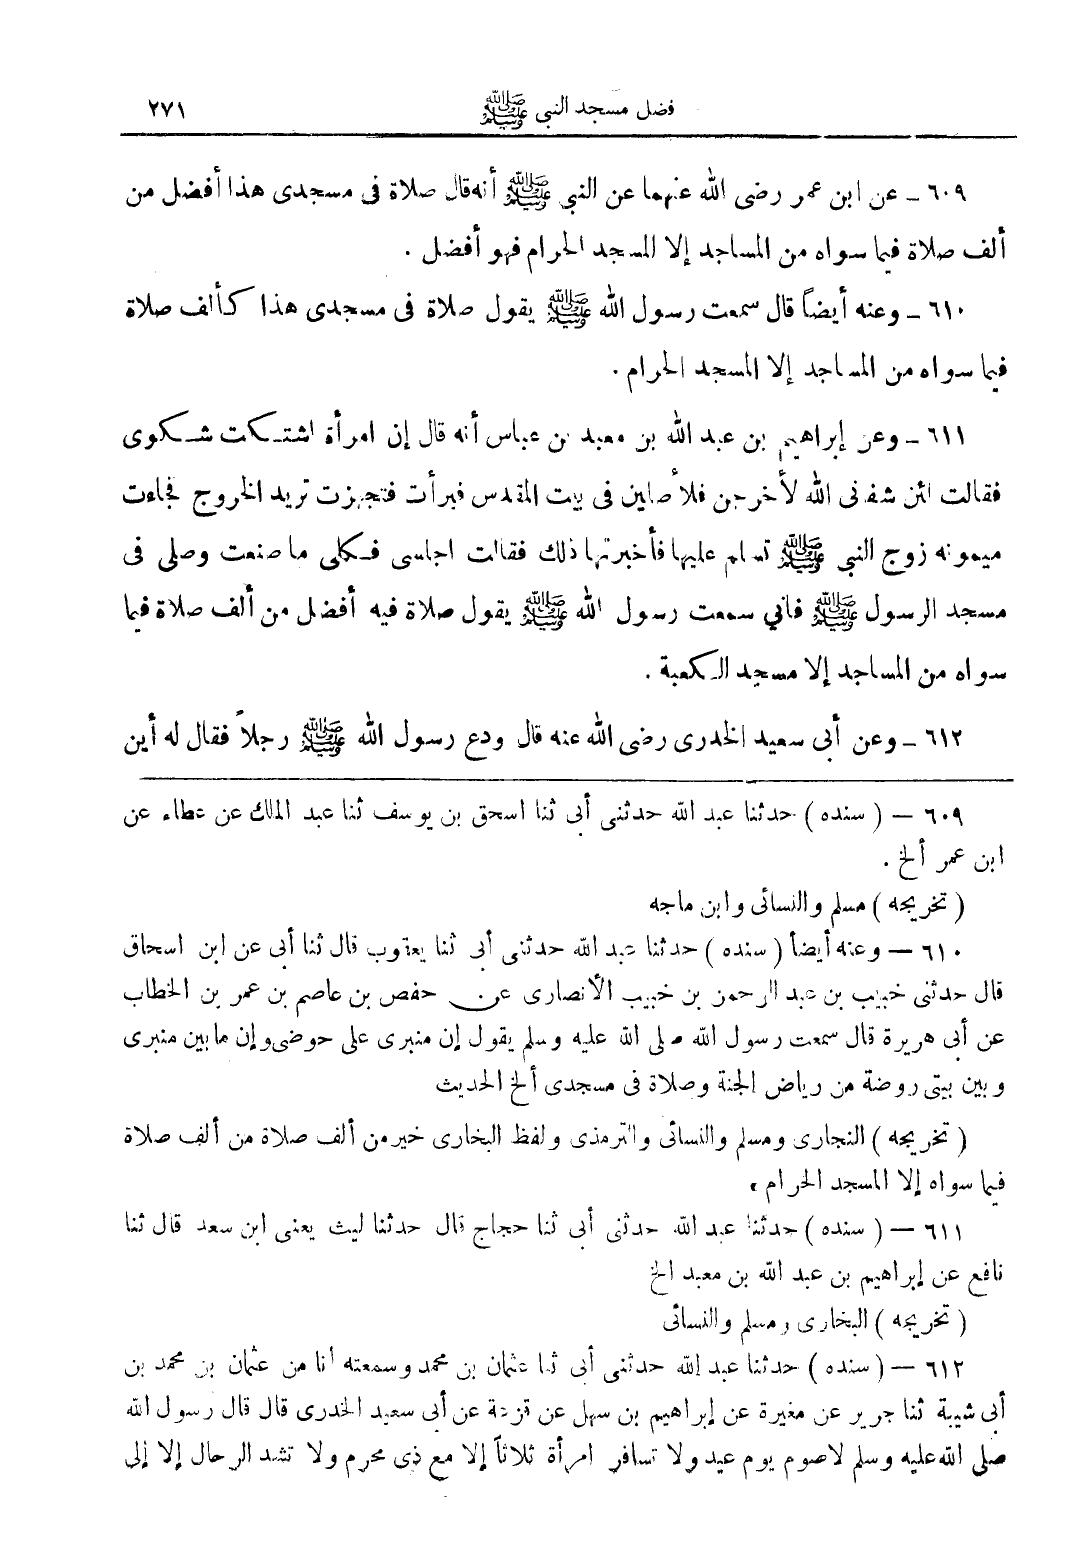 فضل مسجد النبى ﷺ ٢٧١
٦٠٩ ــ عن ابن عمر رضى الله عنهما عن النبي ﷺ أنه قال صلاة فى مسجدى هذا أفضل من
ألف صلاة فيما سواه من المساجد إلا المسجد الحرام فهو أفضل .
٦١٠ ــ وعنه أيضاً قال سمعت رسول الله ﷺ يقول صلاة فى مسجدى هذا كألف صلاة
فيما سواه من المساجد إلا المسجد الحرام .
٦١١ ــ وعن إبراهيم بن عبد الله بن معبد بن عباس أنه قال إن امرأة اشتكت شكوى
فقالت لئن شفنى الله لأخرجن فلأصلين فى بيت المقدس فبرأت فتجهزت تريد الخروج فجاءت
ميمونه زوج النبي ﷺ تسلم عليها فأخبرتها ذلك فقالت اجلسى فكلى ما صنعت وصلى فى
مسجد الرسول ﷺ فانى سمعت رسول الله ﷺ يقول صلاة فيه أفضل من ألف صلاة فيما
سواه من المساجد إلا مسجد الكعبة .
٦١٢ ــ وعن أبى سعيد الخدرى رضى الله عنه قال ودع رسول الله ﷺ رجلاً فقال له أين
٦٠٩ — ( سنده ) حدثنا عبد الله حدثنى أبى ثنا اسحق بن يوسف ثنا عبد الملك عن عطاء عن
ابن عمر ألخ .
( تخريجه ) مسلم والنسائى وابن ماجه
٦١٠ — وعنه أيضاً ( سنده ) حدثنا عبد الله حدثنى أبى ثنا يعقوب قال ثنا أبى عن ابن اسحاق
قال حدثنى خبيب بن عبد الرحمن بن خبيب الأنصارى عن حفص بن عاصم بن عمر بن الخطاب
عن أبى هريرة قال سمعت رسول الله صلى الله عليه وسلم يقول إن منبرى على حوضى وإن ما بين منبرى
وبين بيتى روضة من رياض الجنة وصلاة فى مسجدى ألخ الحديث
( تخريجه ) النجارى ومسلم والنسائى والترمذى ولفظ البخارى خير من ألف صلاة من ألف صلاة
فيما سواه إلا المسجد الحرام .
٦١١ — ( سنده ) حدثنا عبد الله حدثنى أبى ثنا حجاج قال حدثنا ليث يعنى ابن سعد قال ثنا
نافع عن إبراهيم بن عبد الله بن معبد الخ
( تخريجه ) البخارى ومسلم والنسائى
٦١٢ — ( سنده ) حدثنا عبد الله حدثنى أبى ثنا عثمان بن محمد وسمعته أنا من عثمان بن محمد بن
أبى شيبة ثنا جرير عن مغيرة عن إبراهيم بن سهل عن قزعة عن أبى سعيد الخدرى قال قال رسول الله
صلى الله عليه وسلم لا صوم يوم عيد ولا تسافر امرأة ثلاثاً إلا مع ذى محرم ولا تشد الرحال إلا إلى